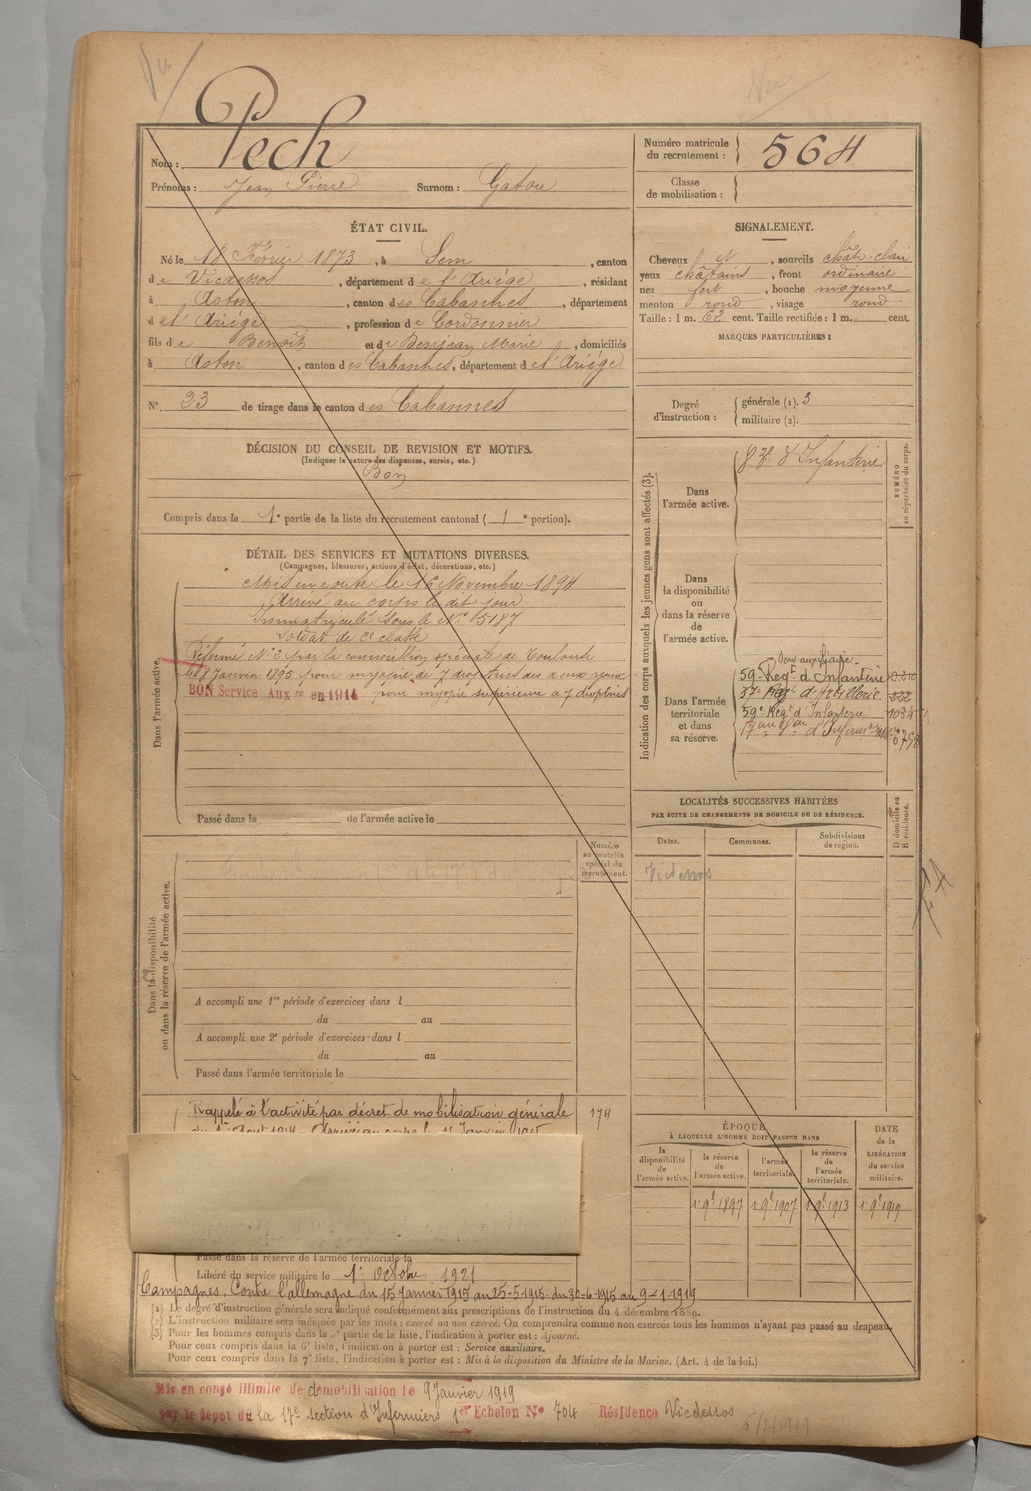 Vu
Vu
Nom : Pech
Prénoms : Jean Pierre Surnom : Gatou
Numéro matricule du recrutement : 564
Classe de mobilisation :
ÉTAT CIVIL.
Né le 18 Février 1873, à Sem, canton
de Vicdessos, département de l'Ariège, résidant
à Aston, canton des Cabannes, département
de l'Ariège, profession de Cordonnier
fils de Benoît et de Benjean Marie, domiciliés
à Aston, canton des Cabannes, département de l'Ariège
N° 23 de tirage dans le canton des Cabannes
SIGNALEMENT.
Cheveux et, sourcils chât. clair
yeux châtains, front ordinaire
nez fort, bouche moyenne
menton rond, visage rond
Taille : 1 m. 62 cent. Taille rectifiée : 1 m. cent.
MARQUES PARTICULIÈRES :
Degré d'instruction : générale (1). 3
militaire (2).
DÉCISION DU CONSEIL DE REVISION ET MOTIFS.
(Indiquer la nature des dispenses, sursis, etc.)
Bon
Compris dans la 1e partie de la liste du recrutement cantonal ( 1e portion).
DÉTAIL DES SERVICES ET MUTATIONS DIVERSES.
(Campagnes, blessures, actions d'éclat, décorations, etc.)
Dans l'armée active.
Mis en route le 16 Novembre 1894
Arrivé au corps le dit jour
Immatriculé sous le N° 15187
Soldat de 2e classe
Réformé N° 2 par la commission spéciale de Toulouse
le 8 Janvier 1895 pour myopie de 7 dioptries des deux yeux
BON Service Auxre en 1914 pour myopie supérieure à 7 dioptries
Passé dans la de l'armée active le
Indication des corps auxquels les jeunes gens sont affectés (3).
NUMÉRO au répertoire du corps.
Dans l'armée active. 83e d'Infanterie
Dans la disponibilité ou dans la réserve de l'armée active.
Dans l'armée territoriale et dans sa réserve.
Serv auxiliaire
59e Regt d'Infanterie
Regt d'Artillerie
59e Regt d'Infanterie
LOCALITÉS SUCCESSIVES HABITÉES
PAR SUITE DE CHANGEMENTS DE DOMICILE OU DE RÉSIDENCE.
Dates. Communes. Subdivisions de région. D domicile ou R résidence.
Vicdessos
Dans la disponibilité ou dans la réserve de l'armée active.
Numéro au contrôle spécial du recrutement.
A accompli une 1re période d'exercices dans l
du au
A accompli une 2e période d'exercices dans l
du au
Passé dans l'armée territoriale le
Rappelé à l'activité par décret de mobilisation générale 174
du 1er Août 1914. Arrivé au corps le 15 Janvier 1915
Passé dans la réserve de l'armée territoriale le
Libéré du service militaire le 1er octobre 1921
ÉPOQUE À LAQUELLE L'HOMME DOIT PASSER DANS
la disponibilité de l'armée active. la réserve de l'armée active. l'armée territoriale. la réserve de l'armée territoriale.
DATE de la LIBÉRATION du service militaire.
1 9bre 1897 1 9bre 1907 1 9bre 1913 1 9bre 1919
Campagnes, Contre l'allemagne du 15 Janvier 1915 au 25-5-1915. du 30-6-1915 au 9-1-1919
(1) Le degré d'instruction générale sera indiqué conformément aux prescriptions de l'instruction du 4 décembre 1889.
(2) L'instruction militaire sera indiquée par les mots : exercé ou non exercé. On comprendra comme non exercés tous les hommes n'ayant pas passé au drapeau.
(3) Pour les hommes compris dans la 2e partie de la liste, l'indication à porter est : Ajourné.
Pour ceux compris dans la 6e liste, l'indication à porter est : Service auxiliaire.
Pour ceux compris dans la 7e liste, l'indication à porter est : Mis à la disposition du Ministre de la Marine. (Art. 4 de la loi.)
Mis en congé illimité de démobilisation le 9 Janvier 1919
par le dépôt de la 17e section d'Infirmiers 1er Echelon N° 704 Résidence Vicdessos